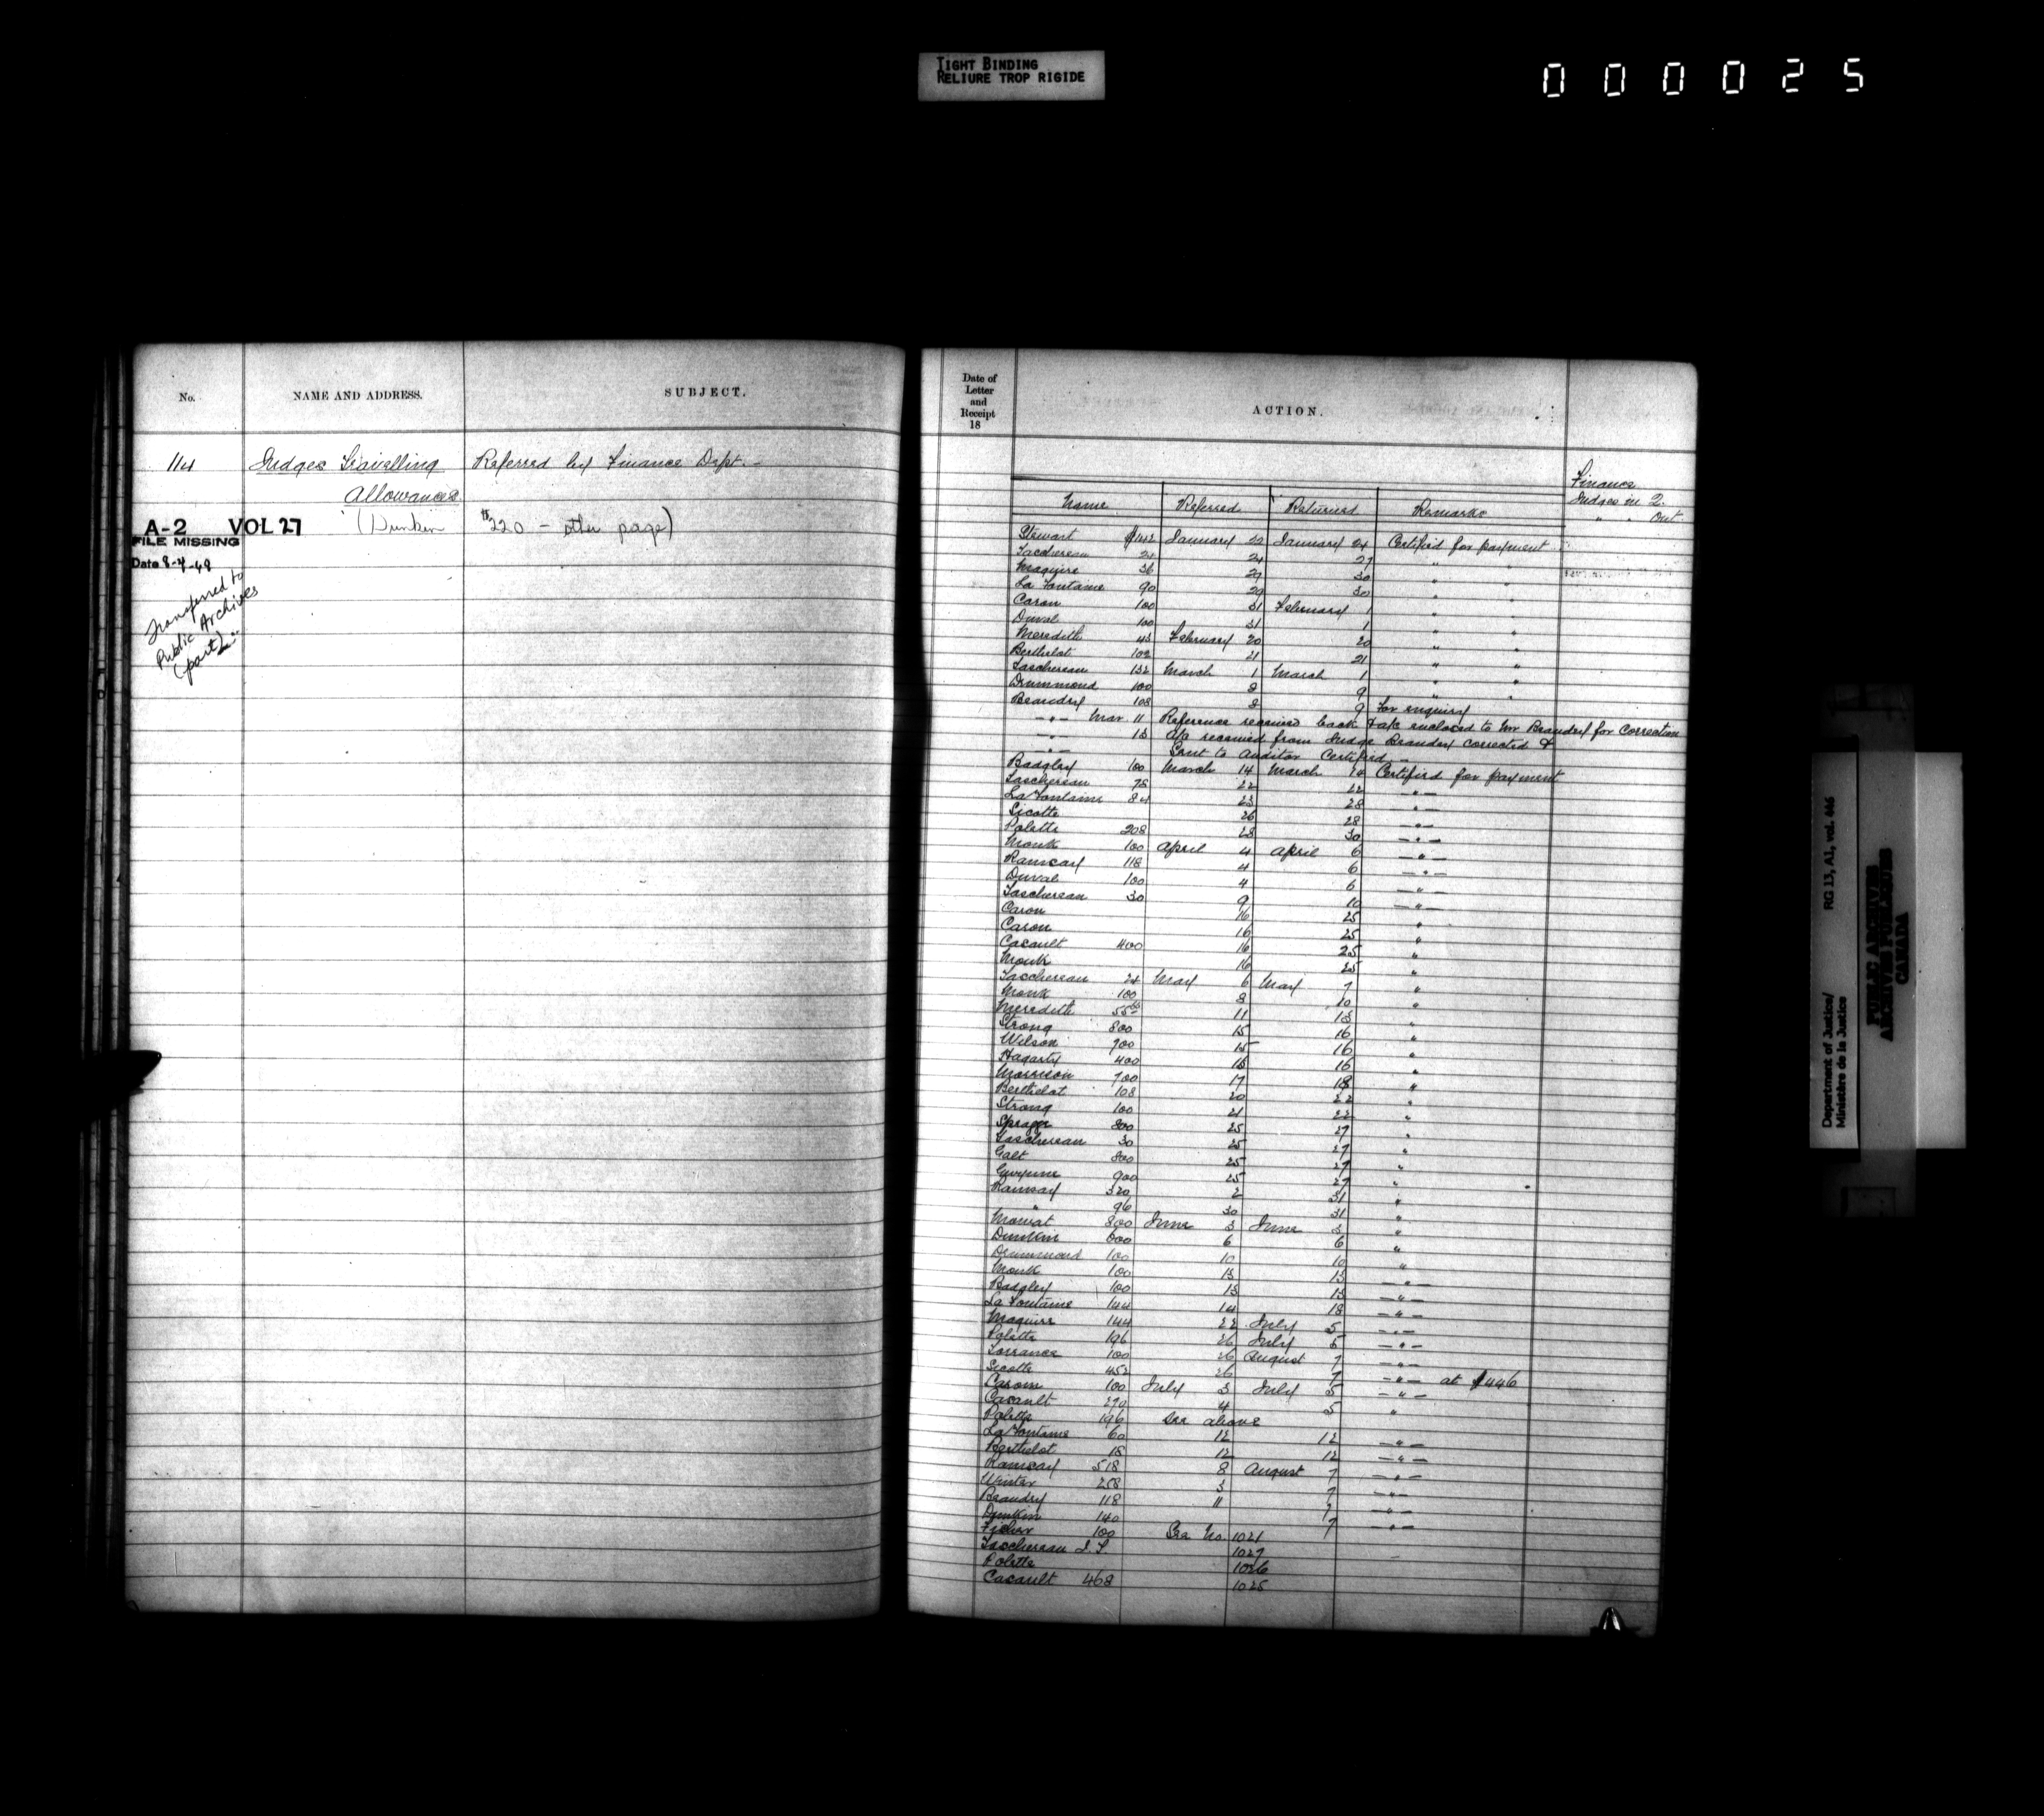 TIGHT BINDING
RELIURE TROP RIGIDE
000025
No.
NAME AND ADDRESS.
SUBJECT.
114 Judges Travelling Referred by Finance Dept. -
Allowances
(Dunkin #220 - other page)
A-2 VOL 27
FILE MISSING
Date 8-4-48
Transferred to
Public Archives
(part)
Date of
Letter
and
Receipt
18
ACTION.
Finance
Judges in 2.
" " Out
Name Referred Returned Remarks
Stewart $142 January 22 January 24 Certified for payment
Taschereau 24 24 27 " "
Maguire 36 29 30 " "
La Fontaine 90 29 30 " "
Caron 100 31 February 1 " "
Duval 100 31 1 " "
Meredith 43 February 20 20 " "
Berthelot 102 21 21 " "
Taschereau 132 March 1 March 1 " "
Drummond 100 8 9 " "
Beaudry 108 8 9 for enquiry
-"- Mar. 11 Reference received back & a/c enclosed to Mr Beaudry for correction
-"- 13 a/c received from Judge Beaudry corrected &
-"- Sent to Auditor Certified -
Badgley 100 March 14 March 14 Certified for payment
Taschereau 78 22 22 -"-
La Fontaine 84 23 28 -"-
Sicotte 26 28 -"-
Polette 208 28 30 -"-
Monk 100 April 4 April 6 -"-
Ramsay 118 4 6 -"-
Duval 100 4 6 -"-
Taschereau 30 9 10 -"-
Caron 16 25 "
Caron 16 25 "
Casault 400 16 25 "
Monk 16 25 "
Taschereau 24 May 6 May 7 "
Monk 100 8 10 "
Meredith 55 11 13 "
Strong 800 15 16 "
Wilson 900 15 16 "
Hagarty 400 15 16 "
Morrison 700 17 18 "
Berthelot 108 20 22 "
Strong 100 21 22 "
Spragge 800 25 27 "
Taschereau 30 25 27 "
Galt 800 25 27 "
Gwynne 900 25 27 "
Ramsay 320 2 31 "
" 96 30 31 "
Mowat 800 June 3 June 3 "
Dunkin 800 6 6 "
Drummond 100 10 10 "
Monk 100 13 13 -"-
Badgley 100 13 13 -"-
La Fontaine 144 14 18 -"-
Maguire 144 22 July 5 -"-
Polette 196 26 July 5 -"-
Torrance 100 26 August 7 -"-
Sicotte 452 26 7 -"- at $446
Caron 100 July 3 July 5 -"-
Casault 270 4 5 "
Polette 196 See above
La Fontaine 60 12 12 -"-
Berthelot 18 12 12 -"-
Ramsay 518 8 August 7 -"-
Winter 258 3 7 -"-
Beaudry 118 11 7 -"-
Dunkin 140 7 -"-
Fisher 100 See No. 1021
Taschereau J.T. 1027
Polette 1026
Casault 468 1025
Department of Justice/
Ministère de la Justice
RG 13, A1, vol. 446
PUBLIC ARCHIVES
ARCHIVES PUBLIQUES
CANADA